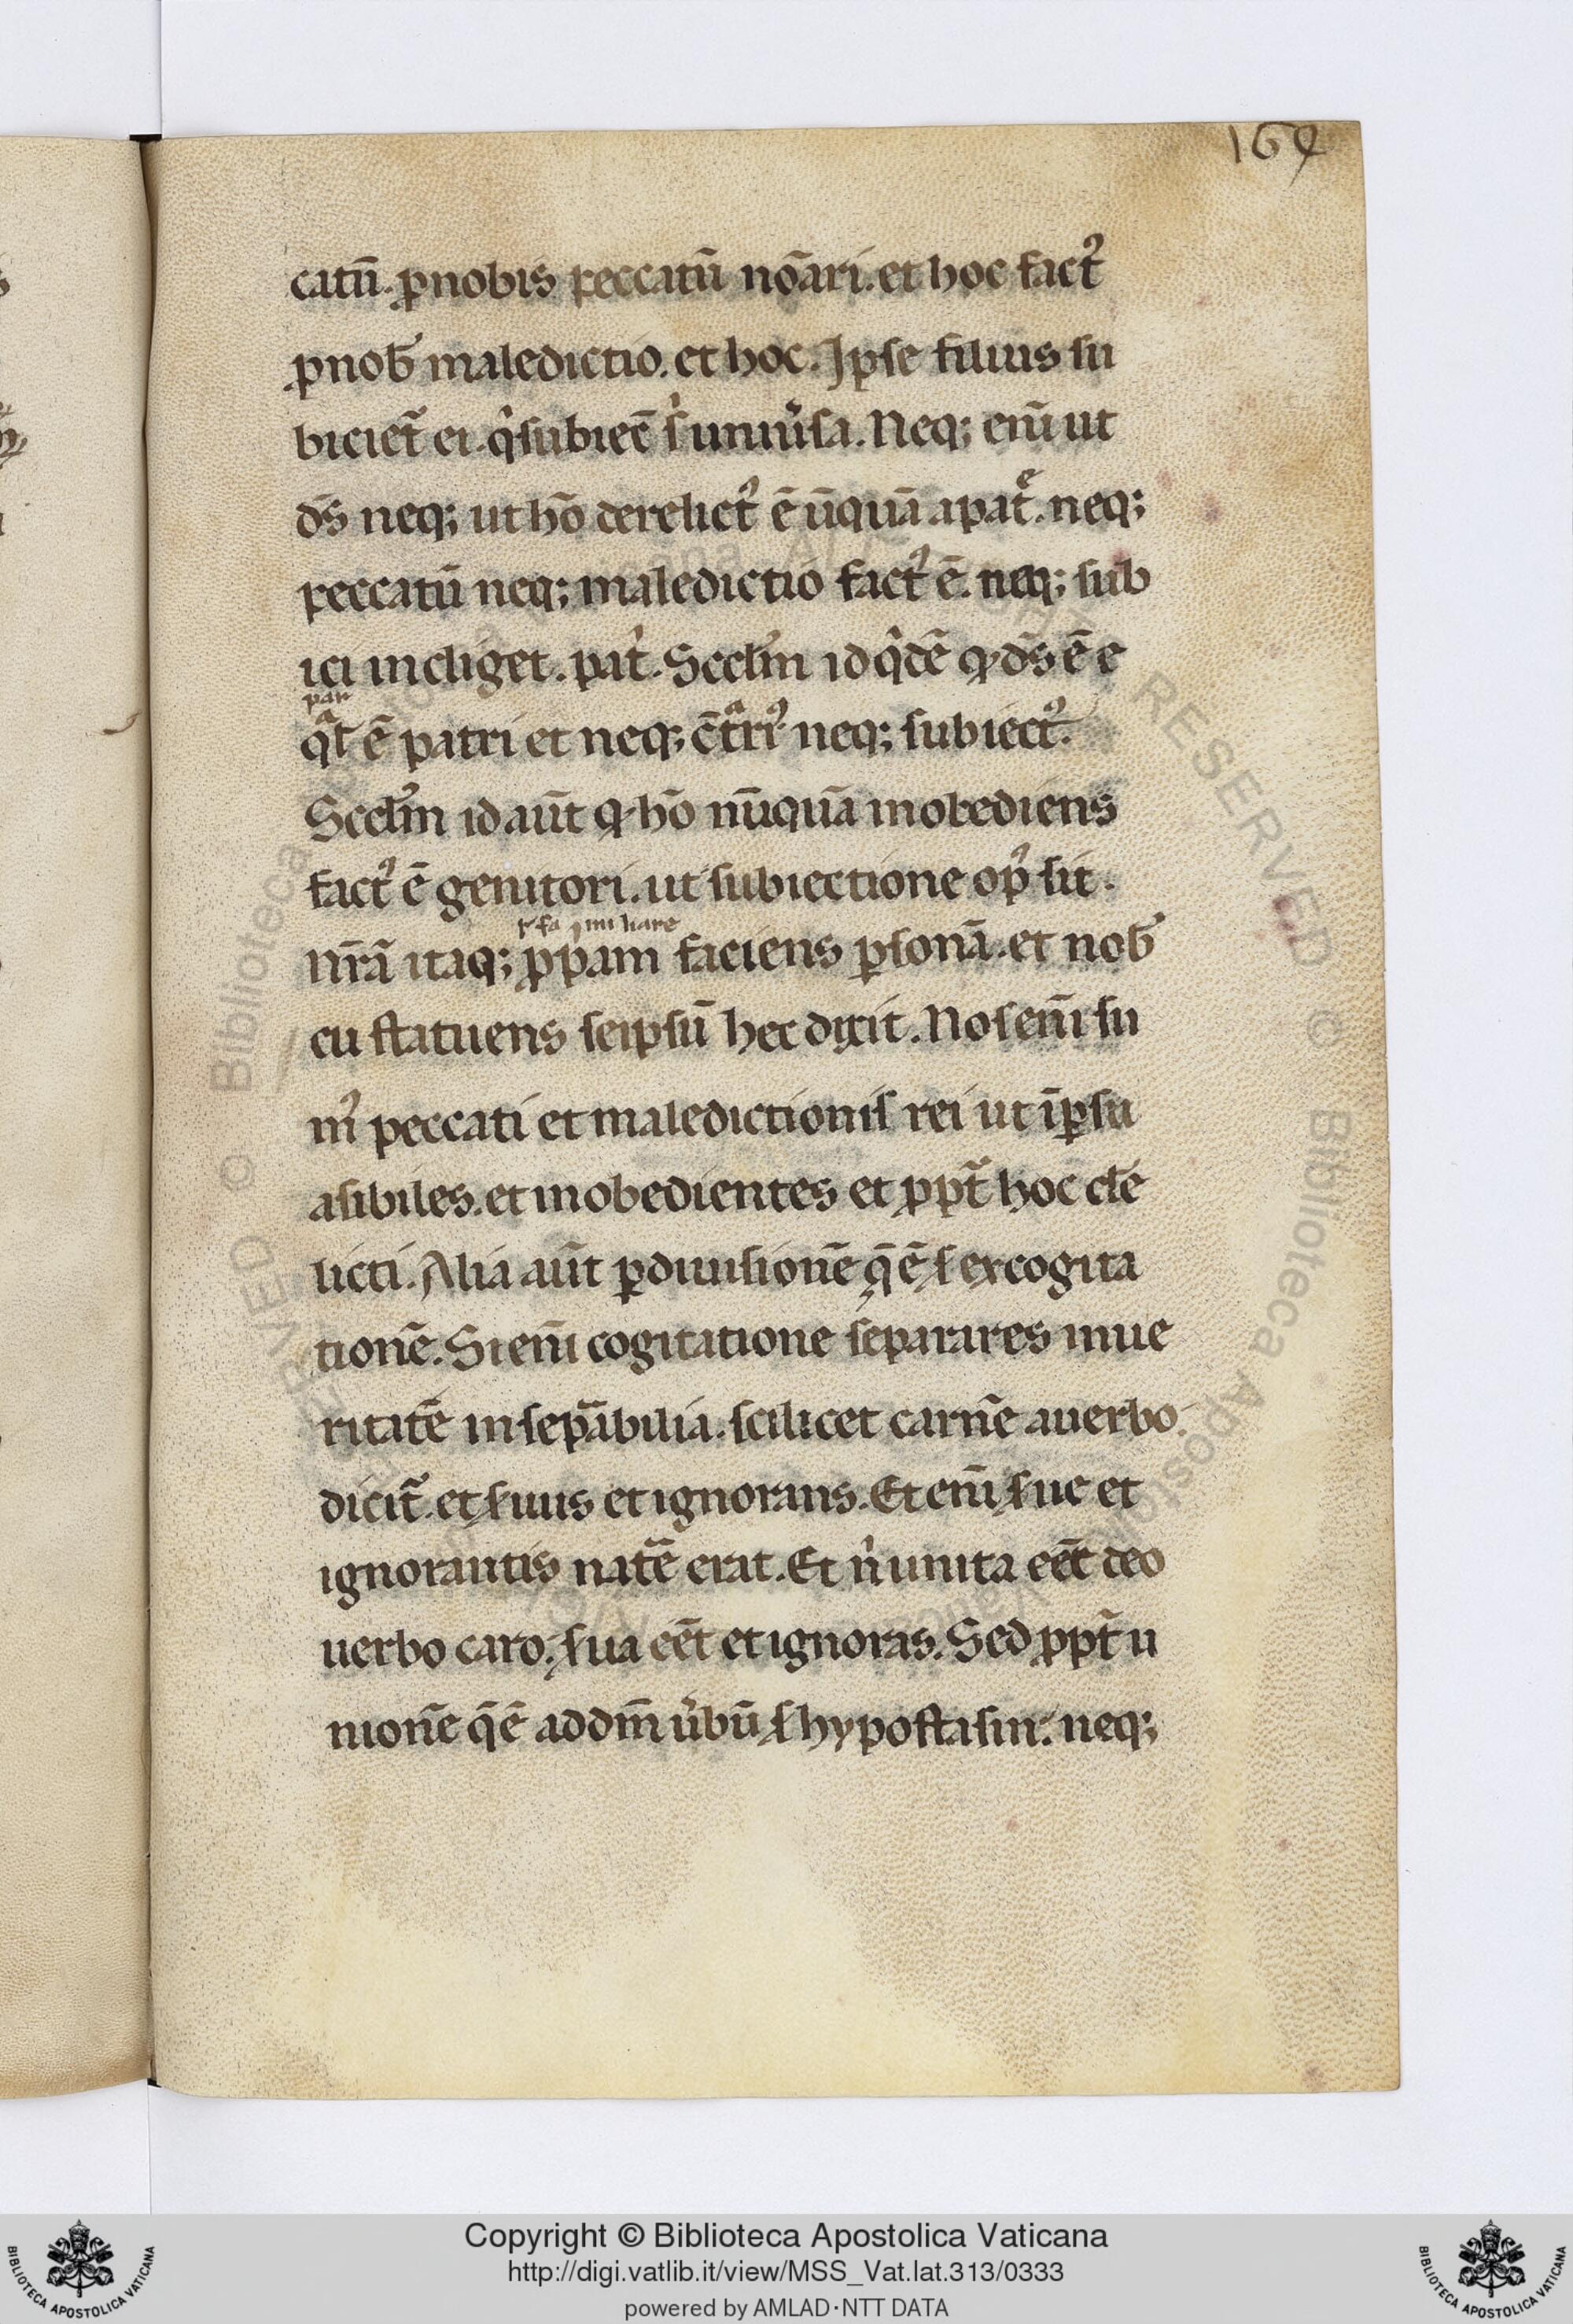 164
catū. ꝓnobis peccatū nōari. et hoc fact᾽
ꝓnob̄ maledictio. et hoc. Ipse filius su
biciet̄ ei. q̇ subiec̄ s̓ uniu̓sa. Neq; eni̅ ut
ds̄ neq; ut hō derelict᾽ ē ūquā a pat̄e. neq;
peccatū neq; maledictio fact᾽ ē. neq; sub
ici indiget. pat̓. Scd̓m id q̓dē ꝙ ds̄ ē e
par
q̄l ē patri et neq; cōtrari᾽ neq; subiect᾽.
Scd̓m id aut̄ ꝙ hō nūquā inobediens
fact᾽ ē genitori. ut subiectione op᾽ sit.
ł fa miliare
nr̄ā itaq; ꝓpam faciens ꝑsonā. et nob̄
cu statuens seipsū hec dixit. Nos eni̅ su
m᾽ peccati et maledictionis rei ut īpsu
asibiles. et inobedientes et ꝓpt̄ hoc de
licti. Alia aut̄ ꝑ diuisionē q̄ ē s excogita
tionē. Si eni̅ cogitatione separares in ue
ritatē insepābilia. scilicet carnē a uerbo.
dicit̄. et s uus et ignorans. Et eni̅ s ue et
ignorantis natē erat. Et n̓ unita eēt deo
uerbo caro. s ua eēt et ignorās. Sed ꝓpt̄ u
nionē q̄ ē ad dm̄ u̓bū s hypostasin. neq;
Copyright © Biblioteca Apostolica Vaticana
http://digi.vatlib.it/view/MSS_Vat.lat.313/0333
powered by AMLAD·NTT DATA
BIBLIOTECA APOSTOLICA VATICANA
BIBLIOTECA APOSTOLICA VATICANA